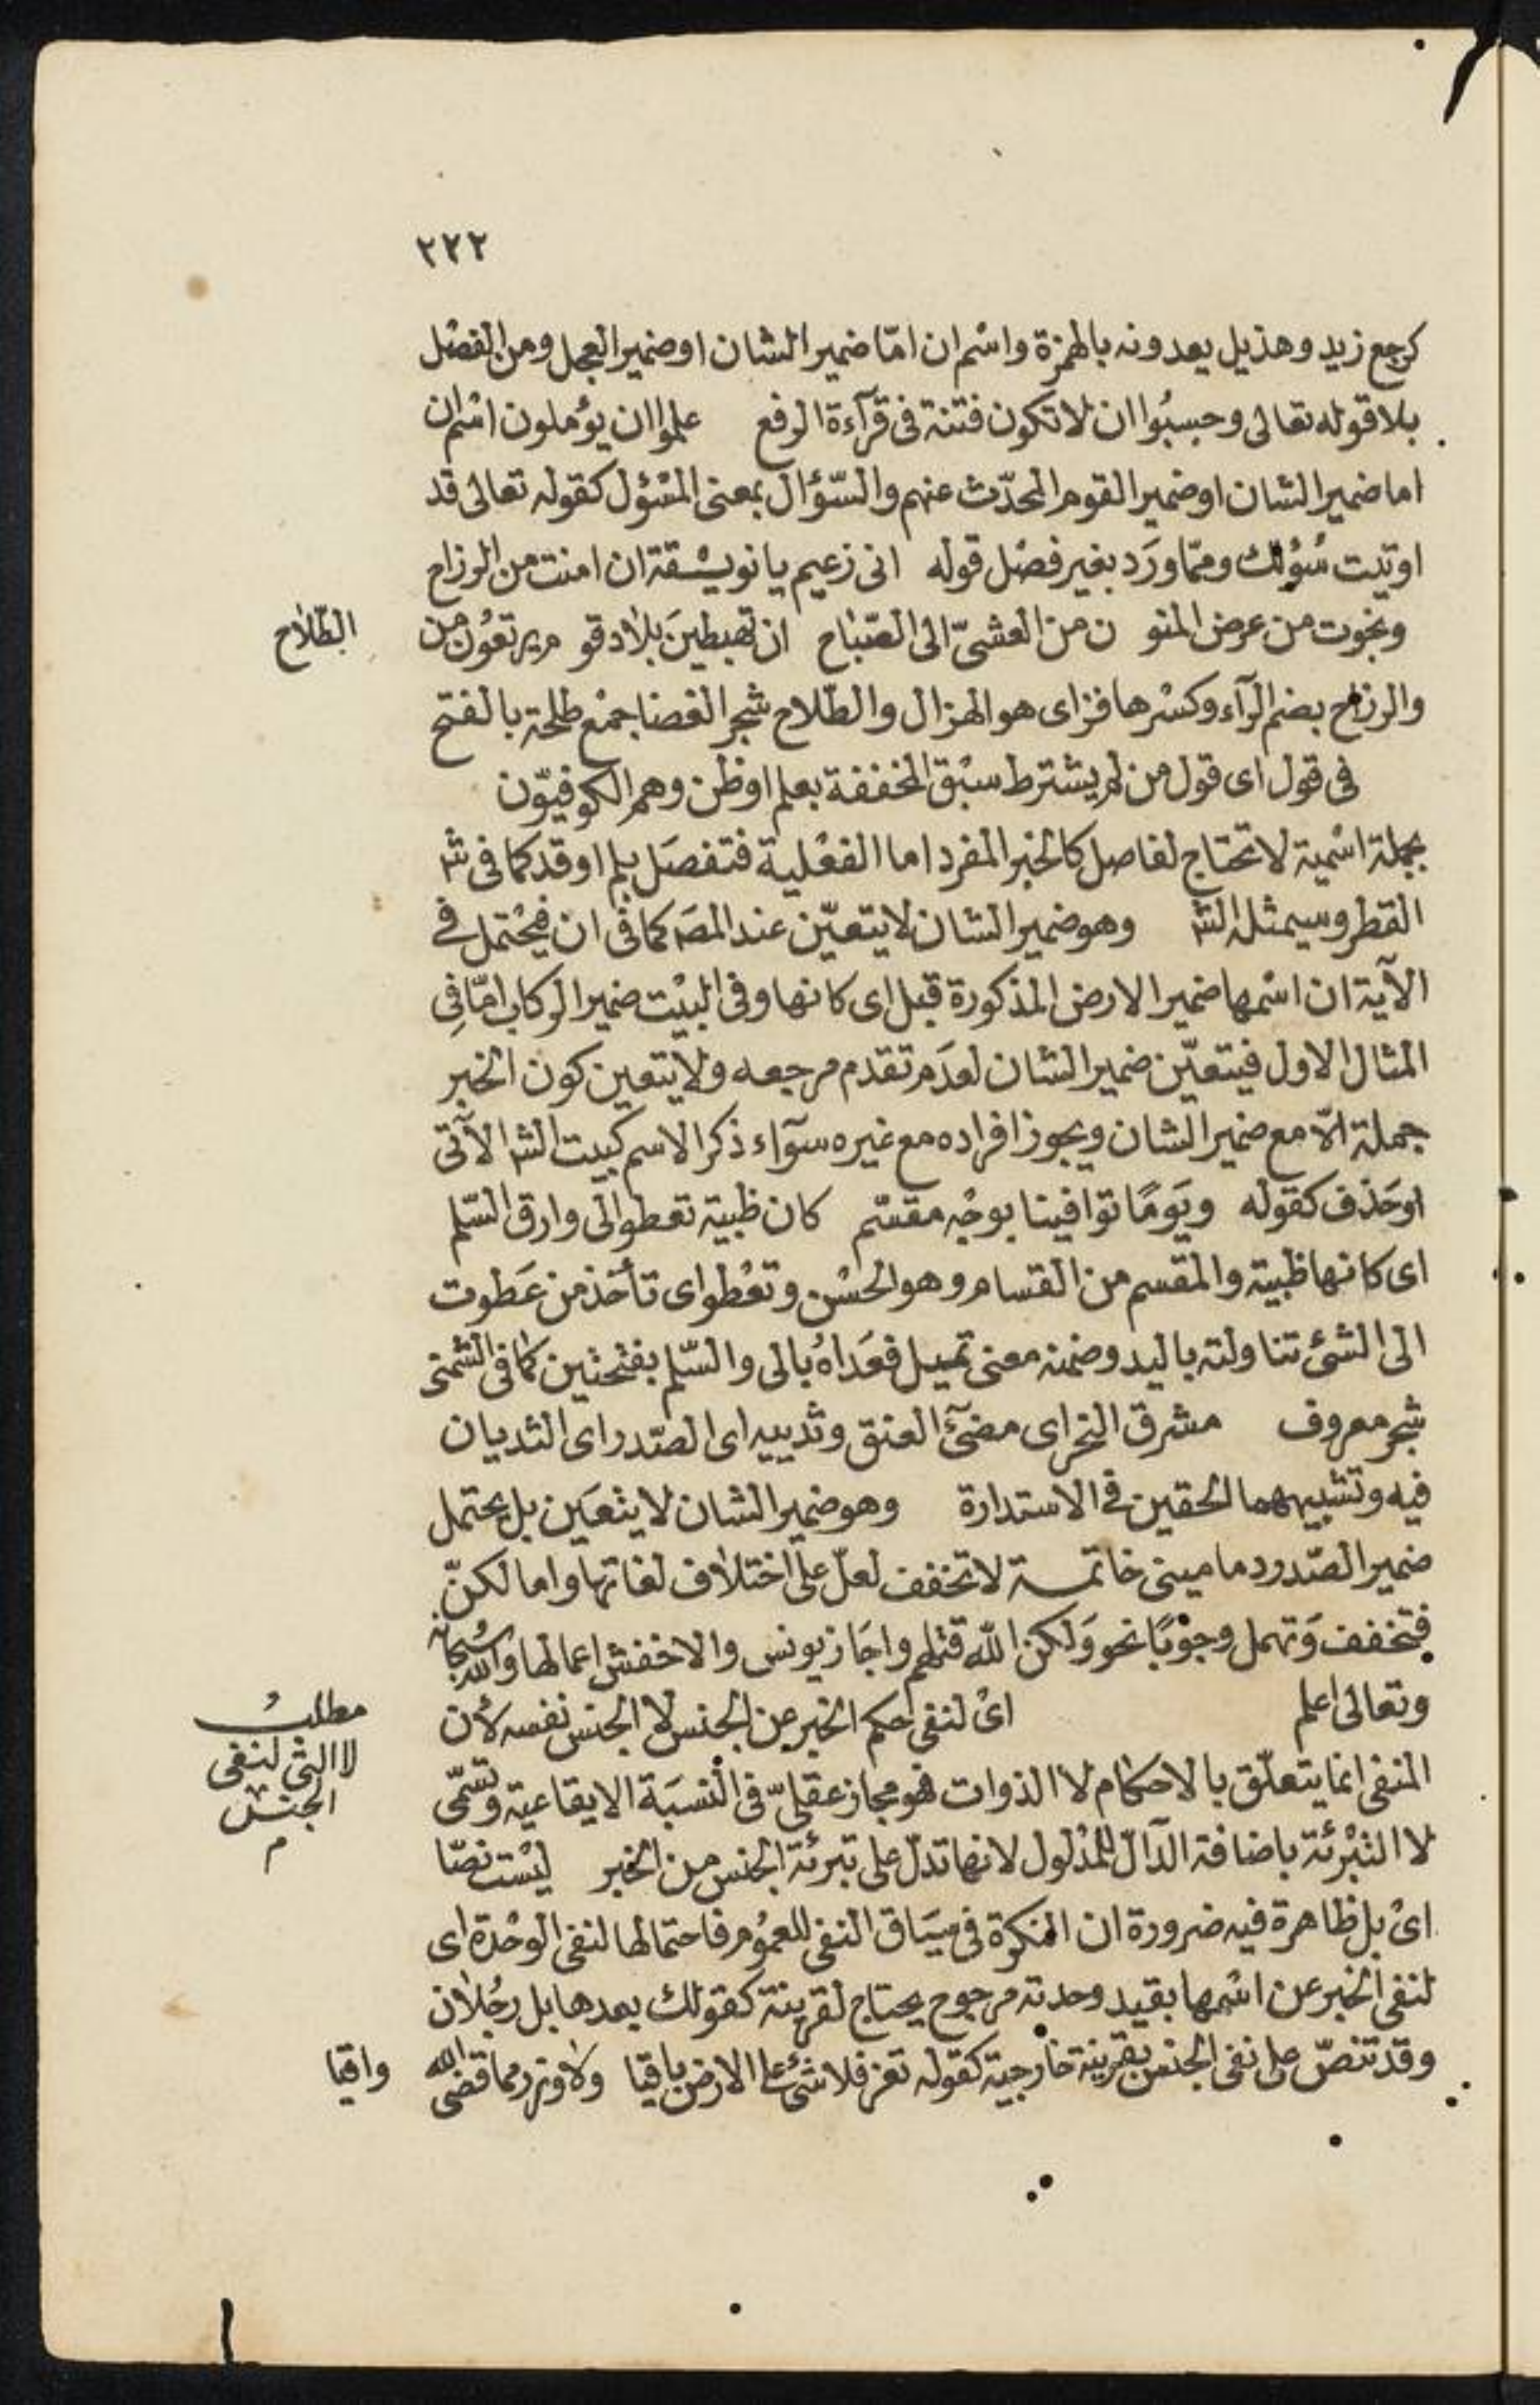 ٢٢٢
كرجع زيد وهذيل يعدونه بالهمزة واسم ان امّا ضمير الشان او ضمير العجل ومن الفصل
بلا قوله تعالى وحسبُوا ان لا تكون فتنة فى قرآءة الرفع علموا ان يؤملون اسم ان
اما ضمير الشان او ضمير القوم المحدّث عنهم والسّؤال بمعنى المسْؤل كقوله تعالى قد
اوتيت سُؤلك وممّا ورَد بغير فصْل قوله انى زعيم يا نويسْقة ان امنت من الرزاح
ونجوت من عرض المنو ن من العشىّ الى الصّباح ان تهبطينَ بلاد قو م يرتعُون من الطّلاح
والرزاح بضم الرآء وكسْرها فزاى هو الهزال والطّلاح شجر الغضا جمْع طلحة بالفتح
فى قول اى قول من لم يشترط سبْق المخففة بعلم او ظن وهم الكوفيّون
بجملة اسْمية لا تحتاج لفاصل كالخبر المفرد اما الفعْلية فتفصَل بلم او قد كما فى ش
القطر وسيمثله الش وهو ضمير الشان لا يتعيّن عند المصَ كما فى ان فيحْتمل فى
الآية ان اسْمها ضمير الارض المذكورة قبل اى كانها وفى البيْت ضمير الركاب امّا فى
المثال الاول فيتعيّن ضمير الشان لعدَم تقدم مرجعه ولا يتعين كون الخبر
جملة الاّ مع ضمير الشان ويجوز افراده مع غيره سوآء ذكر الاسم كبيت الش الآتى
او حَذف كقوله ويَومًا توافينا بوجْه مقسّم كان ظبية تعطو الى وارق السّلم
اى كانها ظبية والمقسم من القسام وهو الحسْن وتعْطو اى تأخذ من عَطوت
الى الشئ تناولته باليد وضمنه معنى تميل فعَداهُ بالى والسّلم بفتحتين كما فى الشمنى
شجر معروف مشرق النحر اى مضئ العنق وثدييه اى الصّدر اى الثديان
فيه وتشبيههما الحقين فى الاستدارة وهو ضمير الشان لا يتعَين بل يحتمل
ضمير الصّدر دمامينى خاتمـة لا تخفف لعلّ على اختلاف لغاتها واما لكنّ
فتخفف وَتهمل وجوْبًا نحو وَلكن الله قتلهم واجَاز يونس والاخفش اعمالها والله سُبحانه
وتعالى اعلم اىْ لنفى حكم الخبر عن الجنس لا الجنس نفسه لأن
المنفى انما يتعلّق بالاحكام لا الذوات فهو مجاز عقلىّ فى النّسبَة الايقاعية وتسمّى
مطلبُ
لا التى لنفى
الجنس
م
لا التبْرئة باضافة الدّالّ للمدْلول لانها تدلّ على تبرئة الجنس من الخبر ليْست نصّا
اىْ بل ظاهرة فيه ضرورة ان النكرة فى سيَاق النفى للعمُوم فاحتمالها لنفى الوحْدة اى
لنفى الخبر عن اسْمها بقيد وحدته مرجوح يحتاج لقرينة كقولك بعدها بل رجُلان
وقد تنصّ على نفى الجنس بقرينة خارجية كقوله تعز فلا شئ على الارض باقيا ولا وزر مما قضى الله واقيا